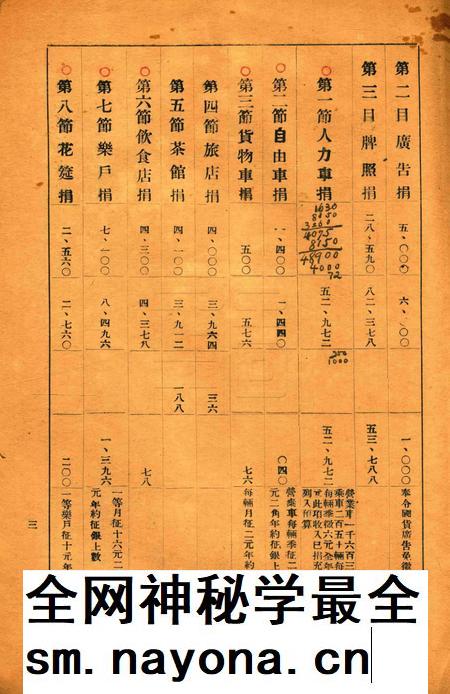 第二目廣告捐 五、〇〇〇 六、〇〇〇 一、〇〇〇 奉令國貨廣告免徵
第三目牌照捐 二八、五九〇 八二、三七八 五三、七八八
第一節人力車捐 五二、九七二 五二、九七二
1630
8150
4075
8150
48900
4000
72
250
1000
營業車一千六百三
乘車二百五十輛每
每輛季徵六元全年
元此項收入已捐充
列入預算
第二節自由車捐 一、四〇〇 一、四四〇 〇四〇
營業車每輛季征二
元二角年約征銀上
第三節貨物車捐 五〇〇 五七六 七六 每輛月征二元年約
第四節旅店捐 四、〇〇〇 三、九六四 三六
第五節茶館捐 四、一〇〇 三、九一二 一八八
第六節飲食店捐 四、三〇〇 四、三七八 七八
第七節樂戶捐 七、一〇〇 八、四九六 一、三九六
一等月征十六元二
元年約征銀上數
第八節花筵捐 二、五六〇 二、七六〇 二〇〇 一等樂戶征十元年
三
全网神秘学最全
sm.nayona.cn